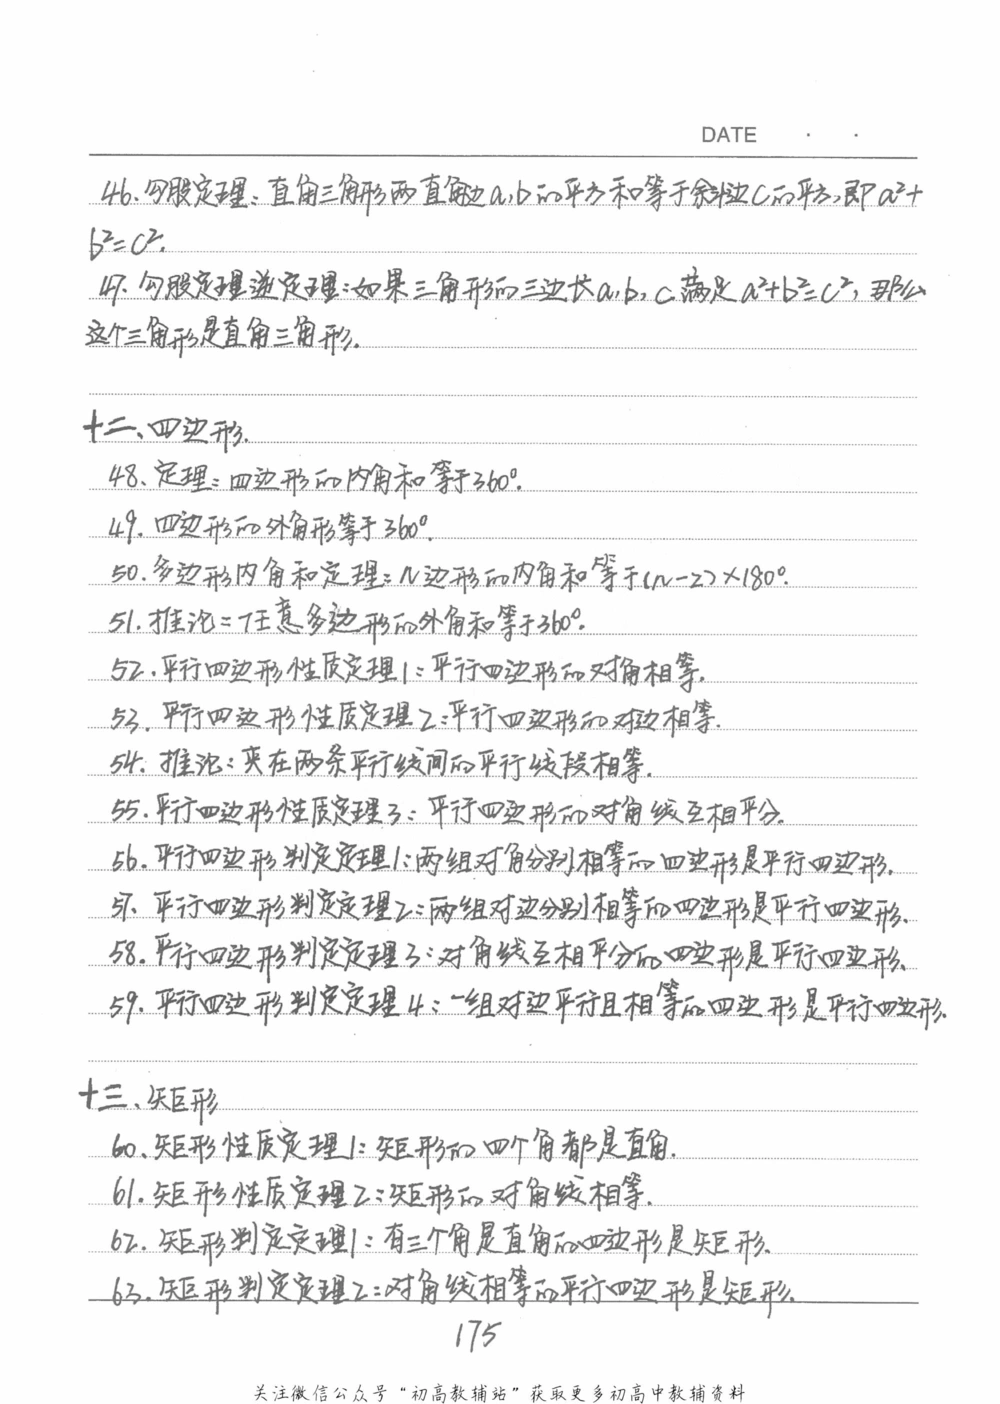 DATE · ·
46.勾股定理:直角三角形两直角边a,b的平方和等于斜边C的平方,即a²+
b²=c².
47.勾股定理逆定理:如果三角形的三边长a,b,c满足a²+b²=c²,那么
这个三角形是直角三角形.
十二、四边形.
48.定理:四边形的内角和等于360°.
49.四边形的外角形等于360°.
50.多边形内角和定理:n边形的内角和等于(n-2)×180°.
51.推论:任意多边形的外角和等于360°.
52.平行四边形性质定理1:平行四边形的对角相等.
53.平行四边形性质定理2:平行四边形的对边相等.
54.推论:夹在两条平行线间的平行线段相等.
55.平行四边形性质定理3:平行四边形的对角线互相平分.
56.平行四边形判定定理1:两组对角分别相等的四边形是平行四边形.
57.平行四边形判定定理2:两组对边分别相等的四边形是平行四边形.
58.平行四边形判定定理3:对角线互相平分的四边形是平行四边形.
59.平行四边形判定定理4:一组对边平行且相等的四边形是平行四边形.
十三、矩形
60.矩形性质定理1:矩形的四个角都是直角.
61.矩形性质定理2:矩形的对角线相等.
62.矩形判定定理1:有三个角是直角的四边形是矩形.
63.矩形判定定理2:对角线相等的平行四边形是矩形.
175
关注微信公众号“初高教辅站”获取更多初高中教辅资料